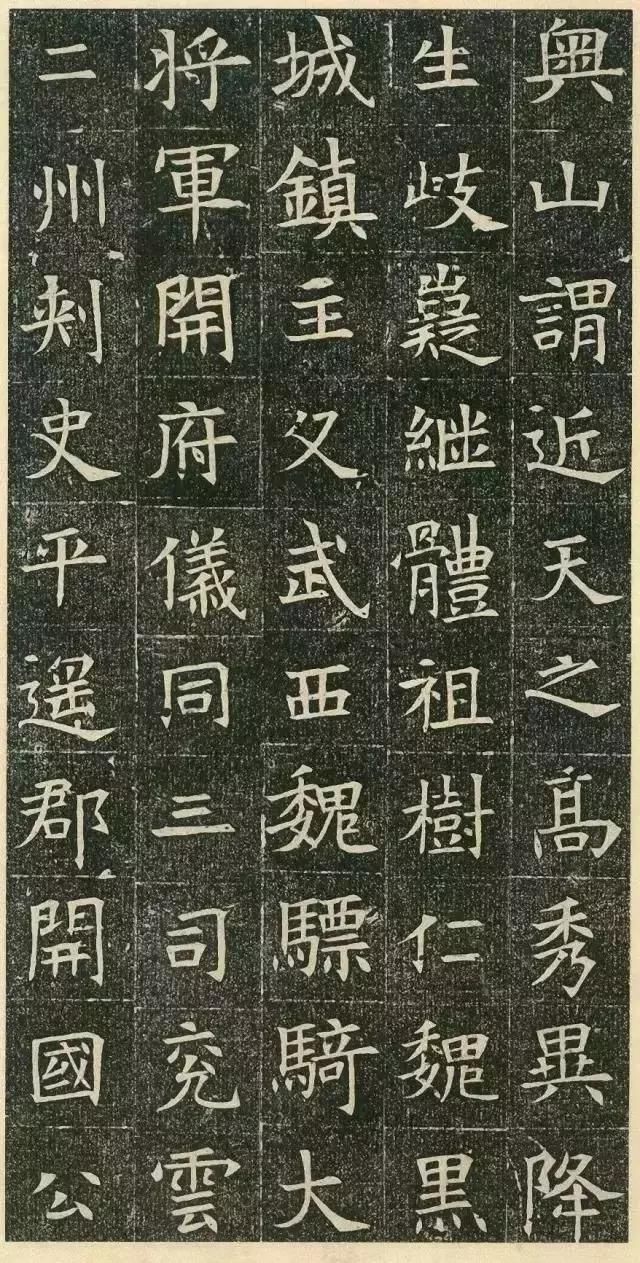 奧山謂近天之髙秀異降
生岐嶷継體祖樹仁魏黑
城鎮主父武西魏驃騎大
将軍開府儀同三司兖雲
二州刾史平遥郡開國公